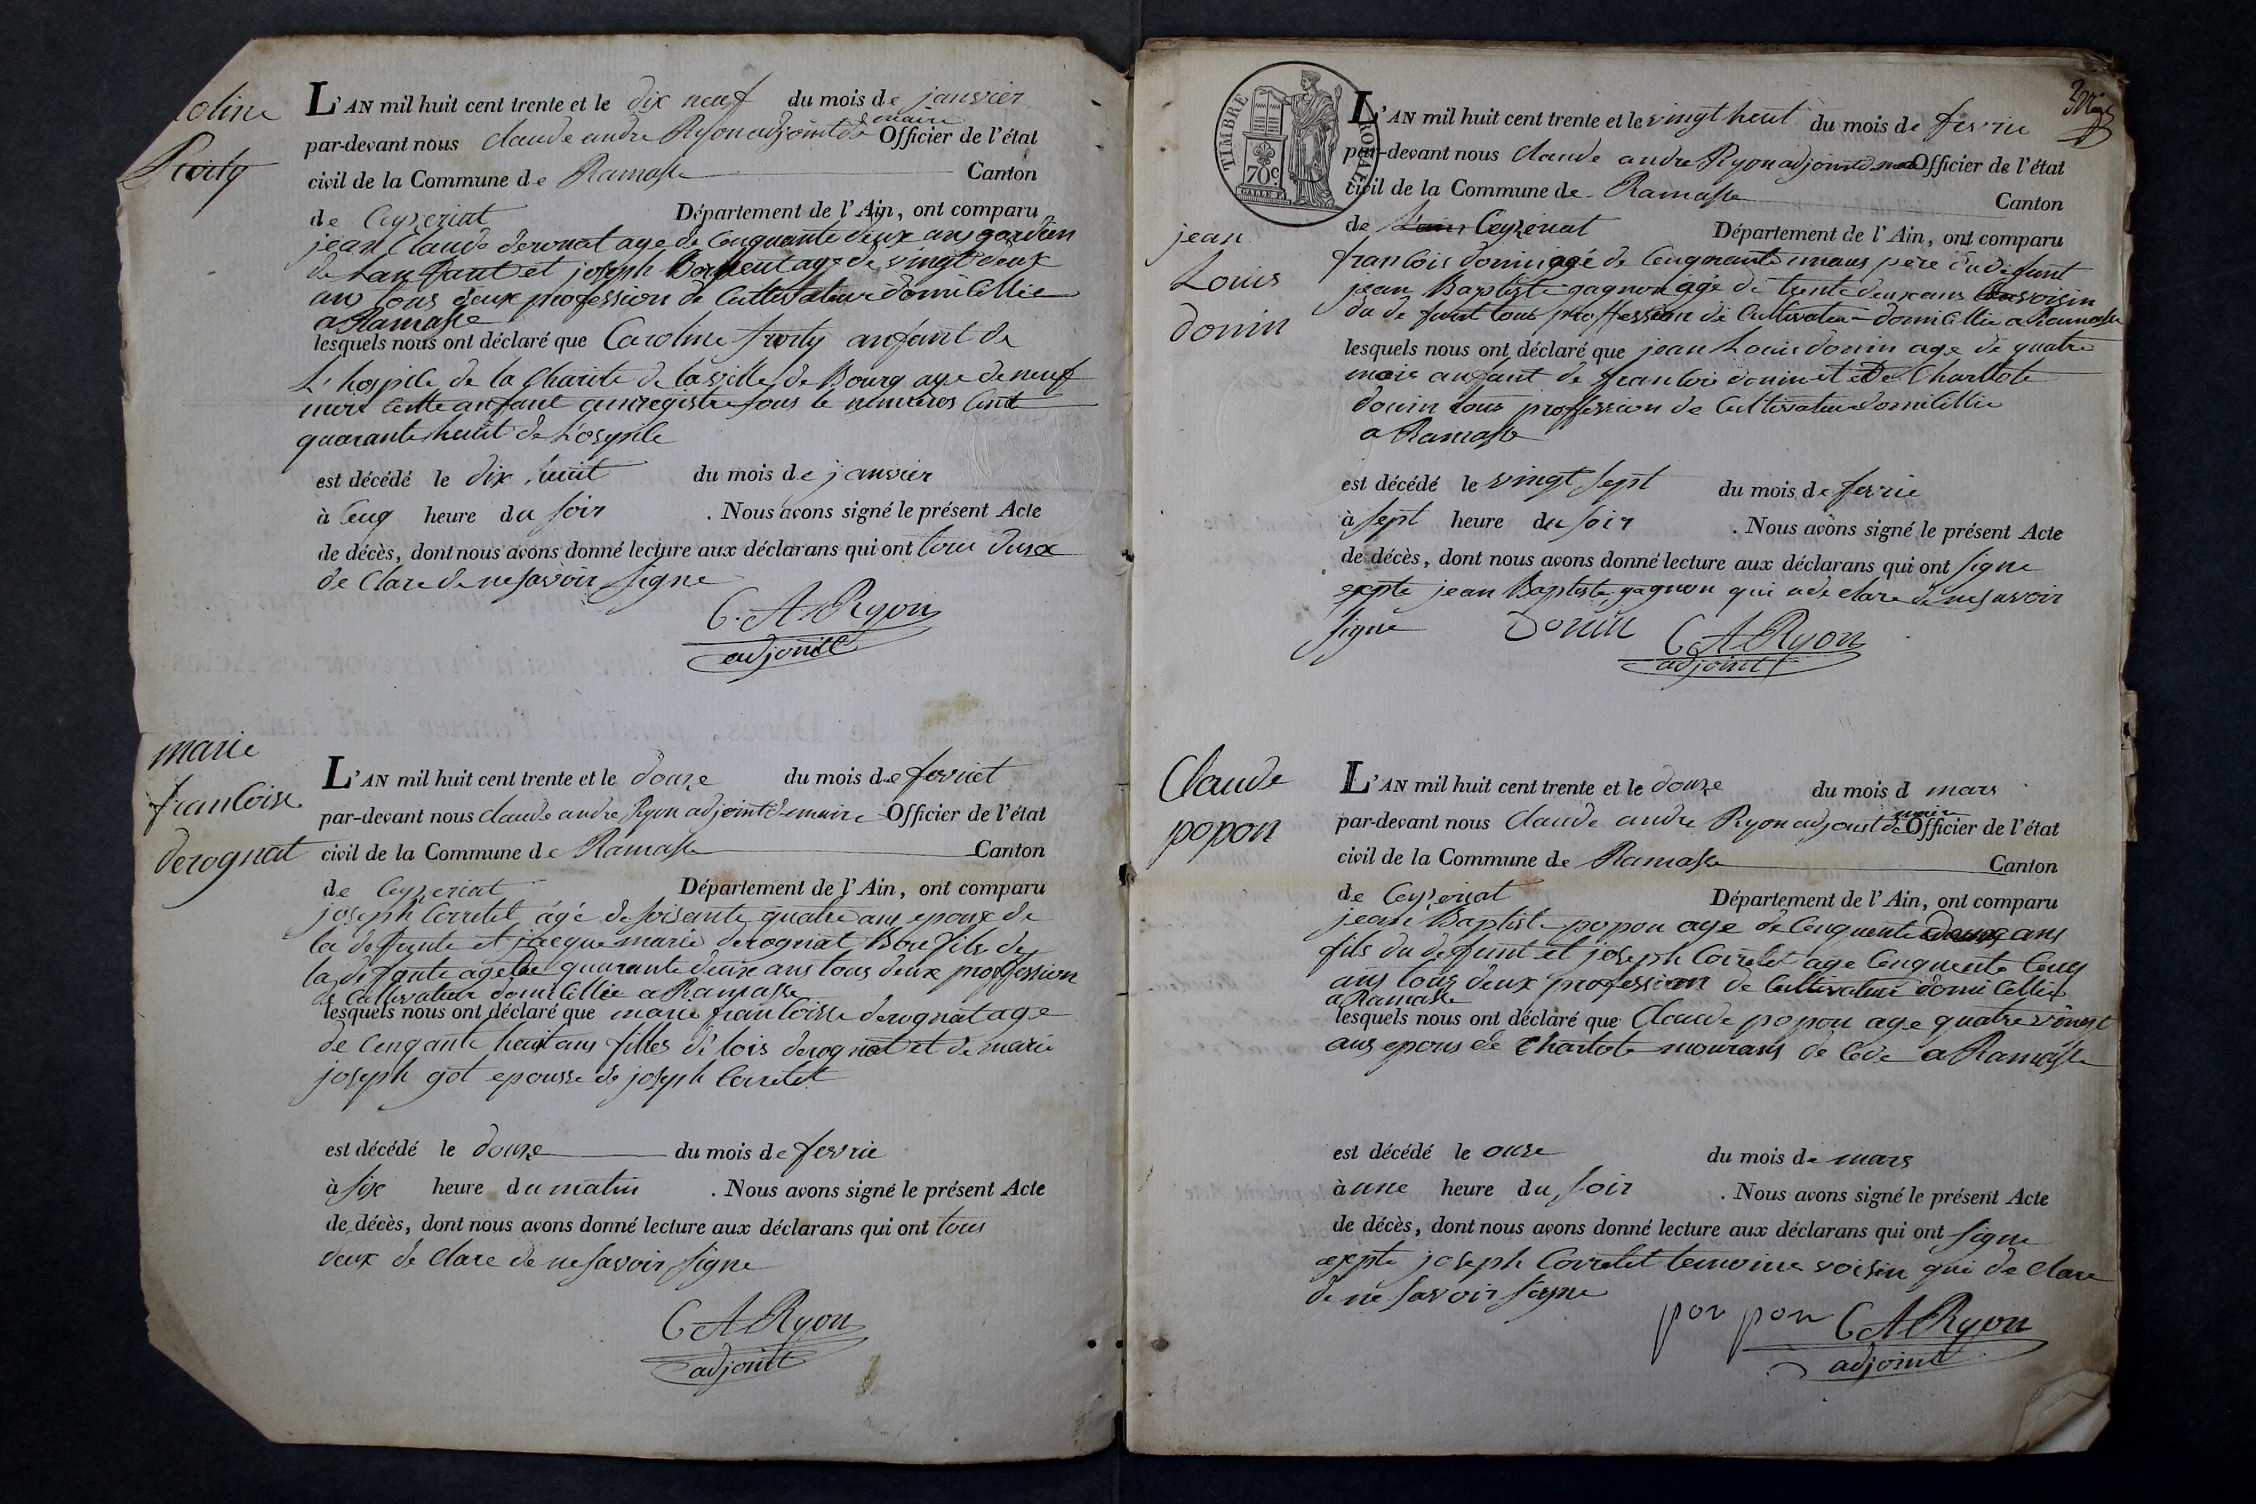 oline
L'AN mil huit cent trente et le dix neuf du mois de janvier
par-devant nous claude andre Ryon adjoint de maire Officier de l'état
civil de la Commune de Ramasse Canton
de Ceyzeriat Département de l'Ain, ont comparu
jean Claude deronat age de Cenquante deux ans gardien
de Lan fant et joseph age de vingt deux
ans tous deux profession de Cultivateur domicillie
a Ramasse
lesquels nous ont déclaré que Caroline anfant de
L'hospice de la Charite de la ville de Bourg age de neuf
mois cette anfant anregistre sous le numeros Cent
quarante huit de L'osypile
est décédé le dix huit du mois de janvier
à Cenq heure du soir . Nous avons signé le présent Acte
de décès, dont nous avons donné lecture aux déclarans qui ont tous deux
de Clare de ne savoir signe
C. A Ryon
adjoint
marie
francoise
derognat
L'AN mil huit cent trente et le douze du mois de fevriet
par-devant nous claude andre Ryon adjoint de maire Officier de l'état
civil de la Commune de Ramasse Canton
de Ceyzeriat Département de l'Ain, ont comparu
joseph Corretet âgé de soisante quatre ans epoux de
la deffunte et jacque marie derognat Bou fils de
la defunte age de quarante deux ans tous deux proffession
de Cultivateur domicillie a Ramasse
lesquels nous ont déclaré que marie francoisse derognat age
de Cenqante huit ans filles de lois derognat et de marie
joseph got epousse de joseph Corretet
est décédé le douze du mois de fevrie
à six heure du matin . Nous avons signé le présent Acte
de décès, dont nous avons donné lecture aux déclarans qui ont tous
deux de Clare de ne savoir signe
C A Ryon
adjoint
TIMBRE ROYAL
70c
jean
Louis
donin
L'AN mil huit cent trente et le vingt heut du mois de fevrie
par-devant nous Claude andre Ryon adjoint de Officier de l'état
civil de la Commune de Ramasse Canton
de Ceyzeriat Département de l'Ain, ont comparu
francois donin agé de Cenquante ans père du defunt
jean Baptiste gagnon âgé de trente deux ans voisin
du de funt tous proffession de Cultivateur domicillie a Ramasse
lesquels nous ont déclaré que jean Louis donin age de quatre
mois anfant de francois donin et de Charlote
donin tous proffession de Cultivateur domicillie
a Ramasse
est décédé le vingt sept du mois de fevrie
à sept heure du soir . Nous avons signé le présent Acte
de décès, dont nous avons donné lecture aux déclarans qui ont signe
exepte jean Baptiste gagnon qui a de clare de ne savoir
signe Donin C A Ryon
adjoint
Claude
popon
L'AN mil huit cent trente et le douze du mois d mars
par-devant nous Claude andre Ryon adjoint de maire Officier de l'état
civil de la Commune de Ramasse Canton
de Ceyzeriat Département de l'Ain, ont comparu
jean Baptiste popon age de Cenquente ans
fils du defunt et joseph Corretet age Cenquente Cenq
ans tous deux profession de Cultivateur domicellie
a Ramasse
lesquels nous ont déclaré que Claude popon age quatre vinest
ans epous de Charlote mourans de Cede a Ramasse
est décédé le onze du mois de mars
à une heure du soir . Nous avons signé le présent Acte
de décès, dont nous avons donné lecture aux déclarans qui ont signe
exepte joseph Corretet temoine voisin qui de Clare
de ne savoir signe
por pon C A Ryon
adjoint